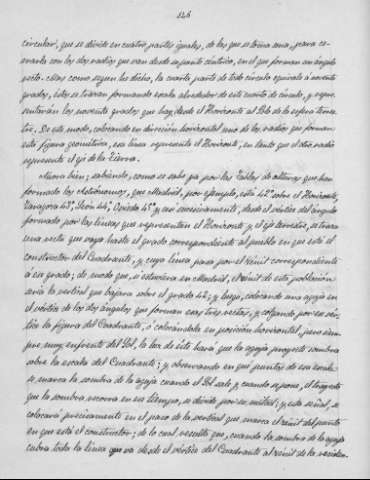 126
circular, que se divide en cuatro partes iguales, de las que se toma una, para ce-
rrarla con los dos radios que van desde su punto céntrico, en el que forman un ángulo
recto. Mas como segun los dicho, la cuarta parte de todo círculo equivale á noventa
grados, éstos se trazan formando escala alrededor de este cuarto de círculo, y repre-
sentarán los noventa grados que hay desde el Horizonte al Polo de la esfera terres-
tre. De este modo, colocando en direccion horizontal uno de los radios que forman
esta figura geométrica, esa línea representa el Horizonte, en tanto que el otro radio
representa el eje de la Tierra.
Ahora bien; sabiendo, como se sabe ya por las Tablas de alturas que han
formado los Astrónomos, que Madrid, por ejemplo, está 42º sobre el Horizonte,
Zaragoza 43º, León 44º, Oviedo 45º, y así sucesivamente, desde el vértice del ángulo
formado por las líneas que representan el Horizonte y el eje terrestre, se traza
una recta que vaya hasta el grado correspondiente al pueblo en que está el
constructor del Cuadrante, y cuya línea pasa por el Zénit correspondiente
á ese grado; de modo que, si estuviera en Madrid, el zénit de esta poblacion
sería la vertical que bajara sobre el grado 42; y luego, colocando una aguja en
el vértice de los dos ángulos que forman esas tres rectas, y colgando por su vér-
tice la figura del Cuadrante, ó colocándola en posicion horizontal, pero siem-
pre muy enfrente del Sol, la luz de éste hará que la aguja proyecte sombra
sobre la escala del Cuadrante; y observando en qué puntos de esa escala
se marca la sombra de la aguja cuando el Sol sale y cuando se pone, el trayecto
que la sombra recorra en ese tiempo, se divide por su mitad; y esta señal, se
colocará precisamente en el paso de la vertical que marca el zénit del punto
en que está el constructor; de lo cual resulta que, cuando la sombra de la aguja
cubra toda la línea que va desde el vértice del Cuadrante al zénit de la residen-